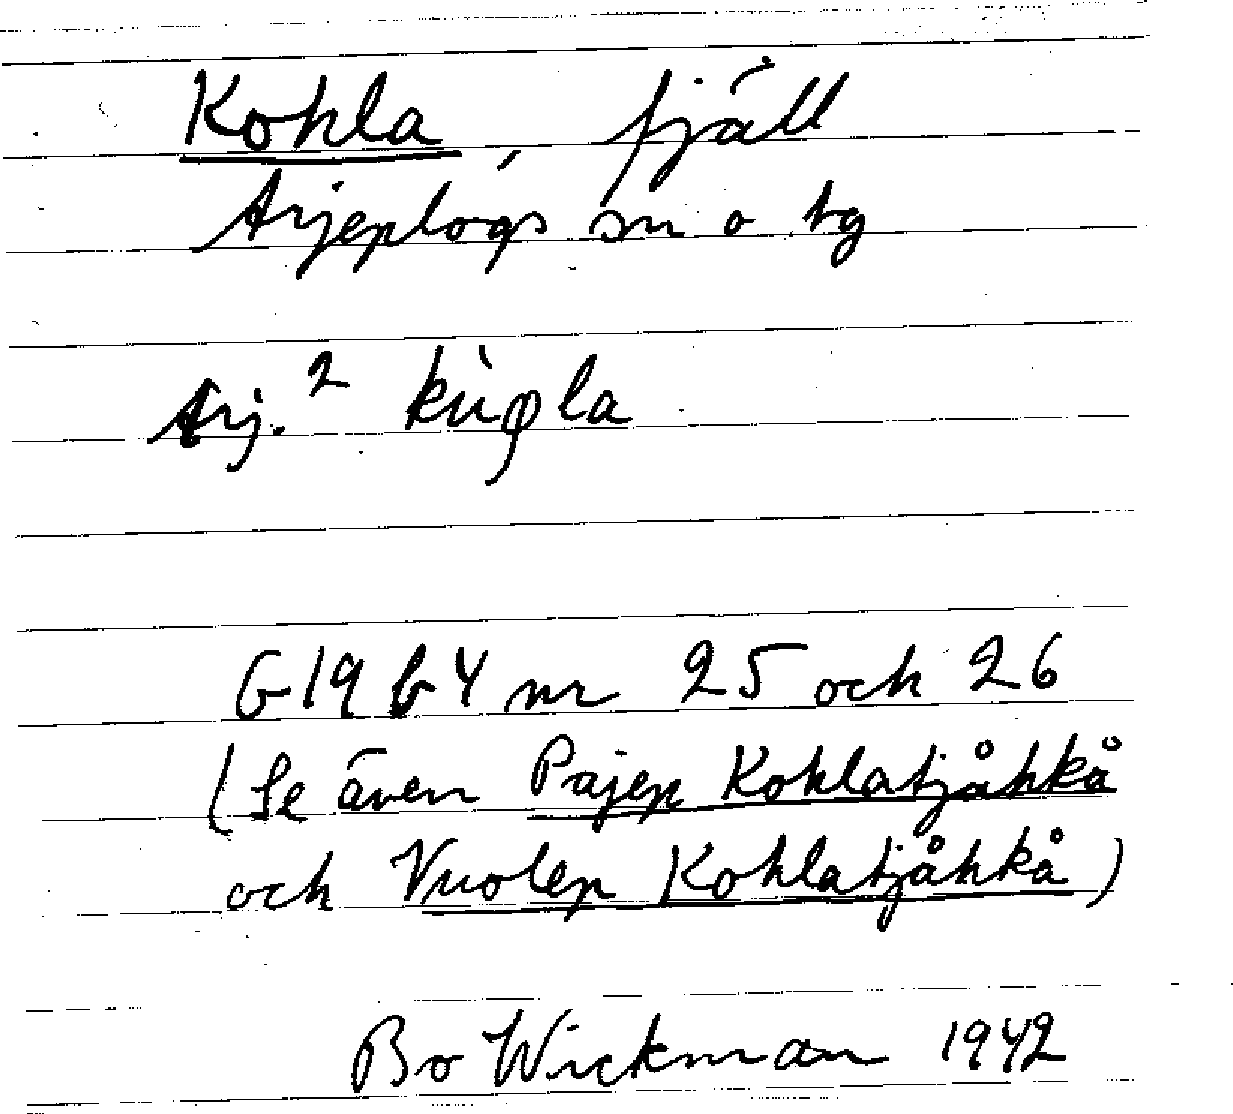 Kohla, fjäll
Arjeplogs sn o tg
Arj.²
G 19 b 4 nr 25 och 26
(Se även Pajep Kohlatjåhkå
och Vuolep Kohlatjåhkå)
Bo Wickman 1942